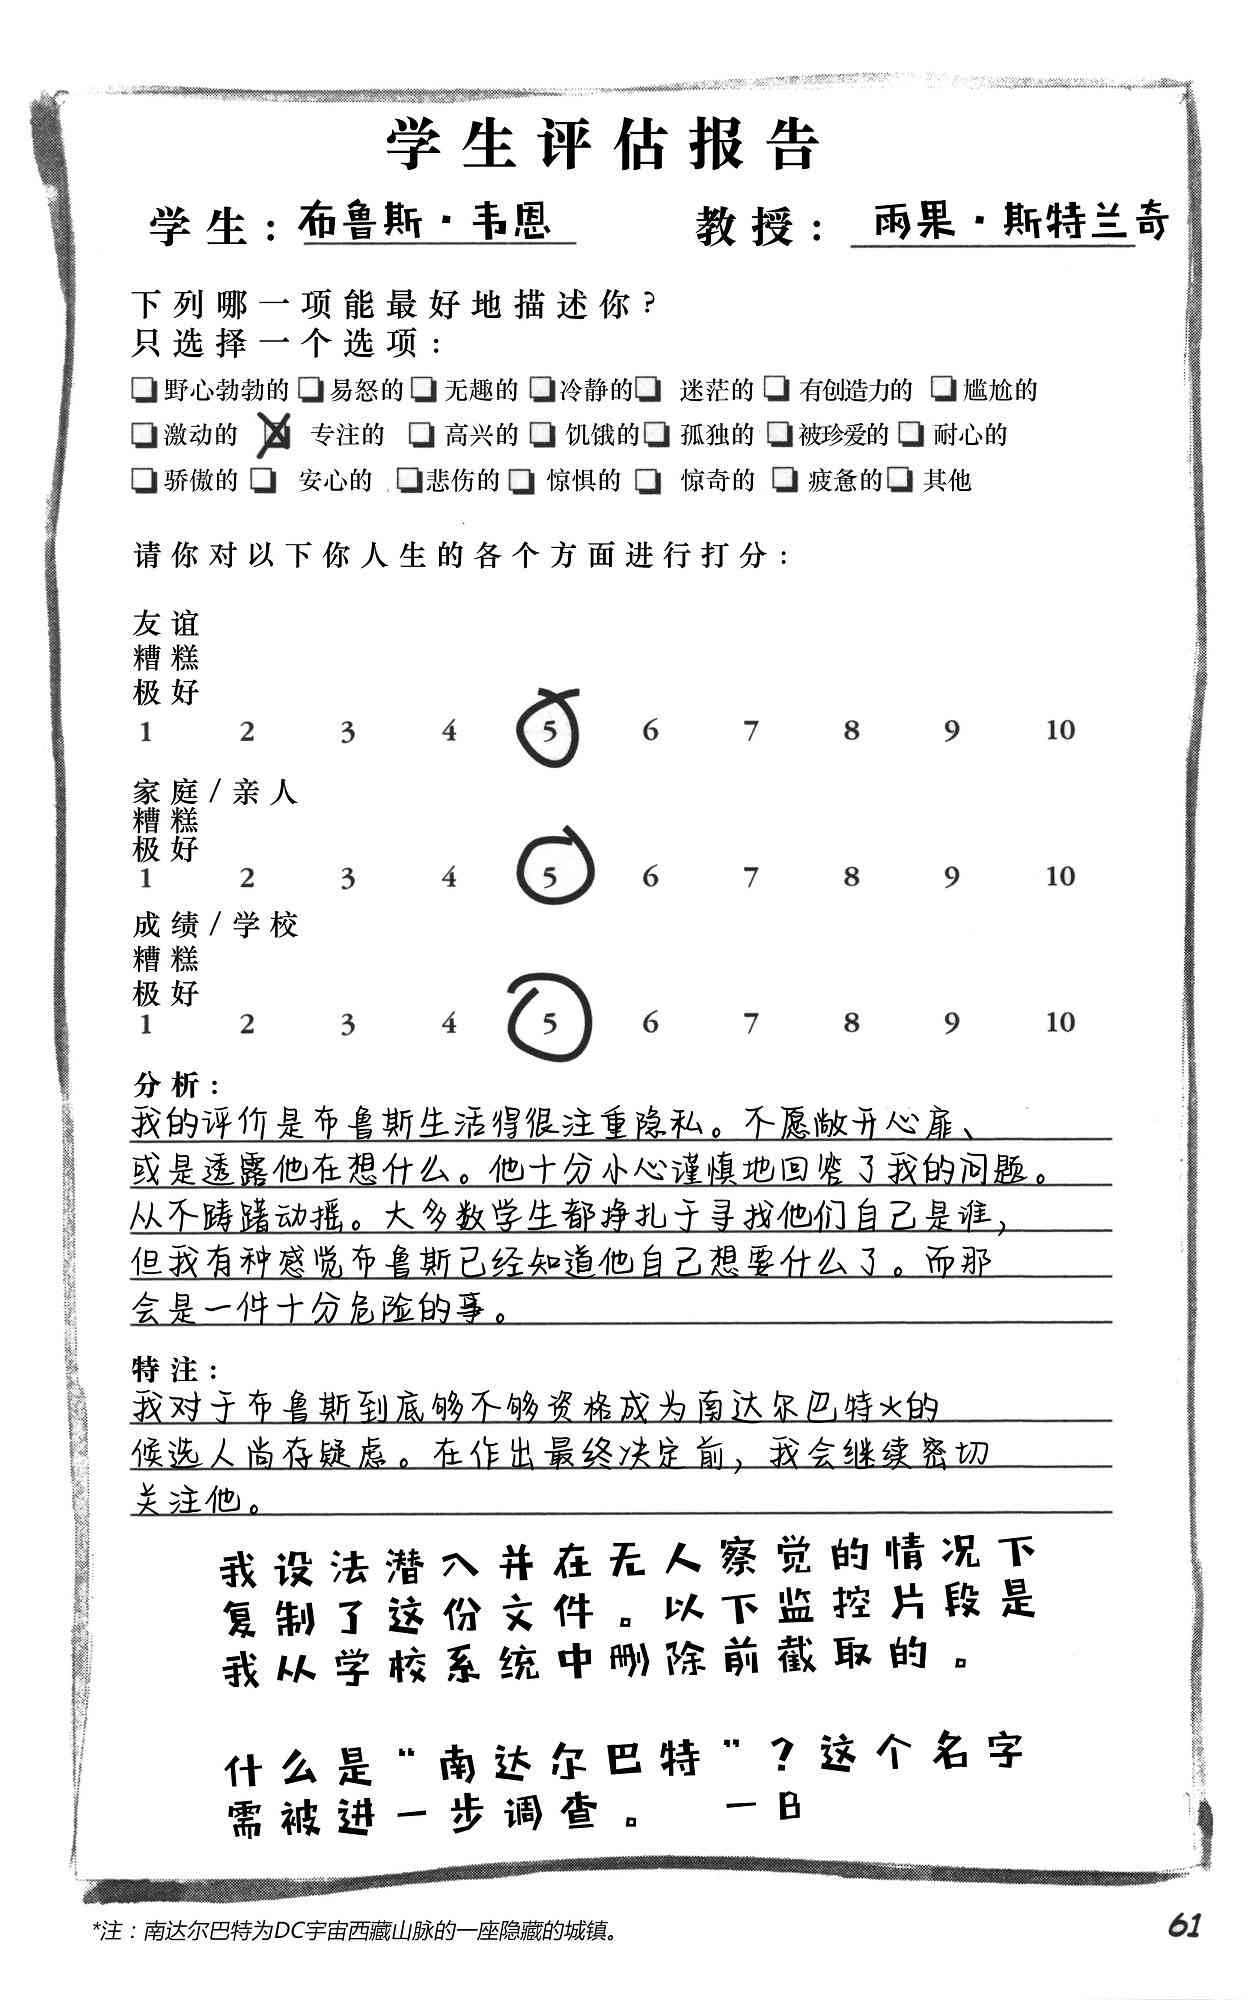 学生评估报告
学生：布鲁斯·韦恩 教授：雨果·斯特兰奇
下列哪一项能最好地描述你？
只选择一个选项：
野心勃勃的 易怒的 无趣的 冷静的 迷茫的 有创造力的 尴尬的
激动的 专注的 高兴的 饥饿的 孤独的 被珍爱的 耐心的
骄傲的 安心的 悲伤的 惊惧的 惊奇的 疲惫的 其他
请你对以下你人生的各个方面进行打分：
友谊
糟糕
极好
1 2 3 4 5 6 7 8 9 10
家庭/亲人
糟糕
极好
1 2 3 4 5 6 7 8 9 10
成绩/学校
糟糕
极好
1 2 3 4 5 6 7 8 9 10
分析：
我的评价是布鲁斯生活得很注重隐私。不愿敞开心扉、
或是透露他在想什么。他十分小心谨慎地回答了我的问题。
从不踌躇动摇。大多数学生都挣扎于寻找他们自己是谁，
但我有种感觉布鲁斯已经知道他自己想要什么了。而那
会是一件十分危险的事。
特注：
我对于布鲁斯到底够不够资格成为南达尔巴特*的
候选人尚存疑虑。在作出最终决定前，我会继续密切
关注他。
我设法潜入并在无人察觉的情况下
复制了这份文件。以下监控片段是
我从学校系统中删除前截取的。
什么是“南达尔巴特”？这个名字
需被进一步调查。 —B
*注：南达尔巴特为DC宇宙西藏山脉的一座隐藏的城镇。
61